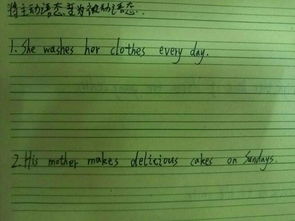 将主动语态变为被动语态.
1. She washes her clothes every day.
2. His mother makes delicious cakes on Sundays.